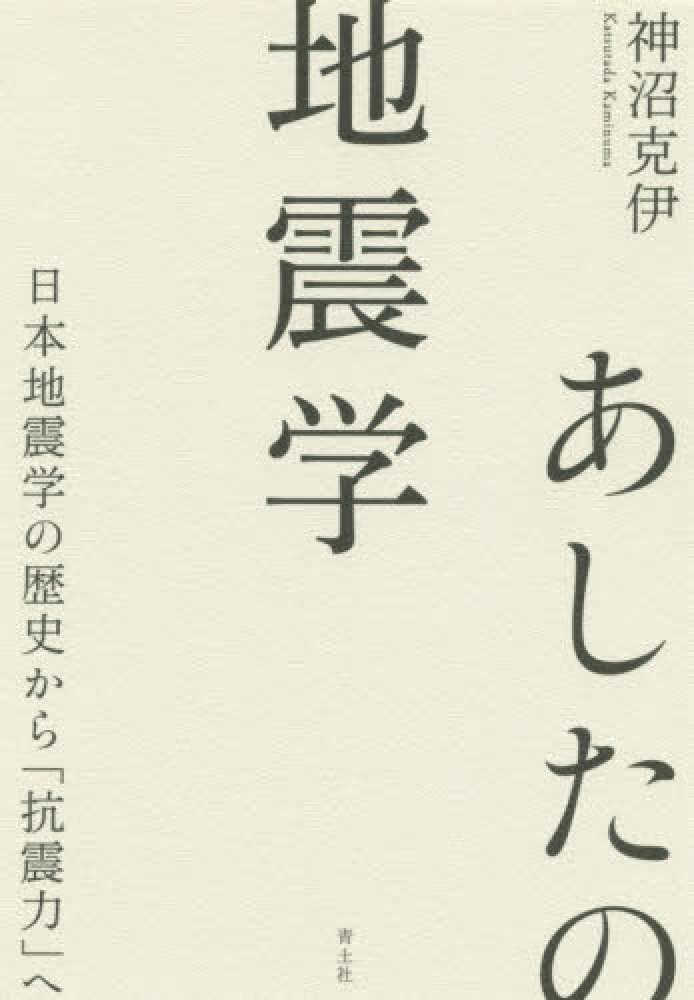 神沼克伊
Katsutada Kaminuma
あしたの
地震学
日本地震学の歴史から「抗震力」へ
青土社